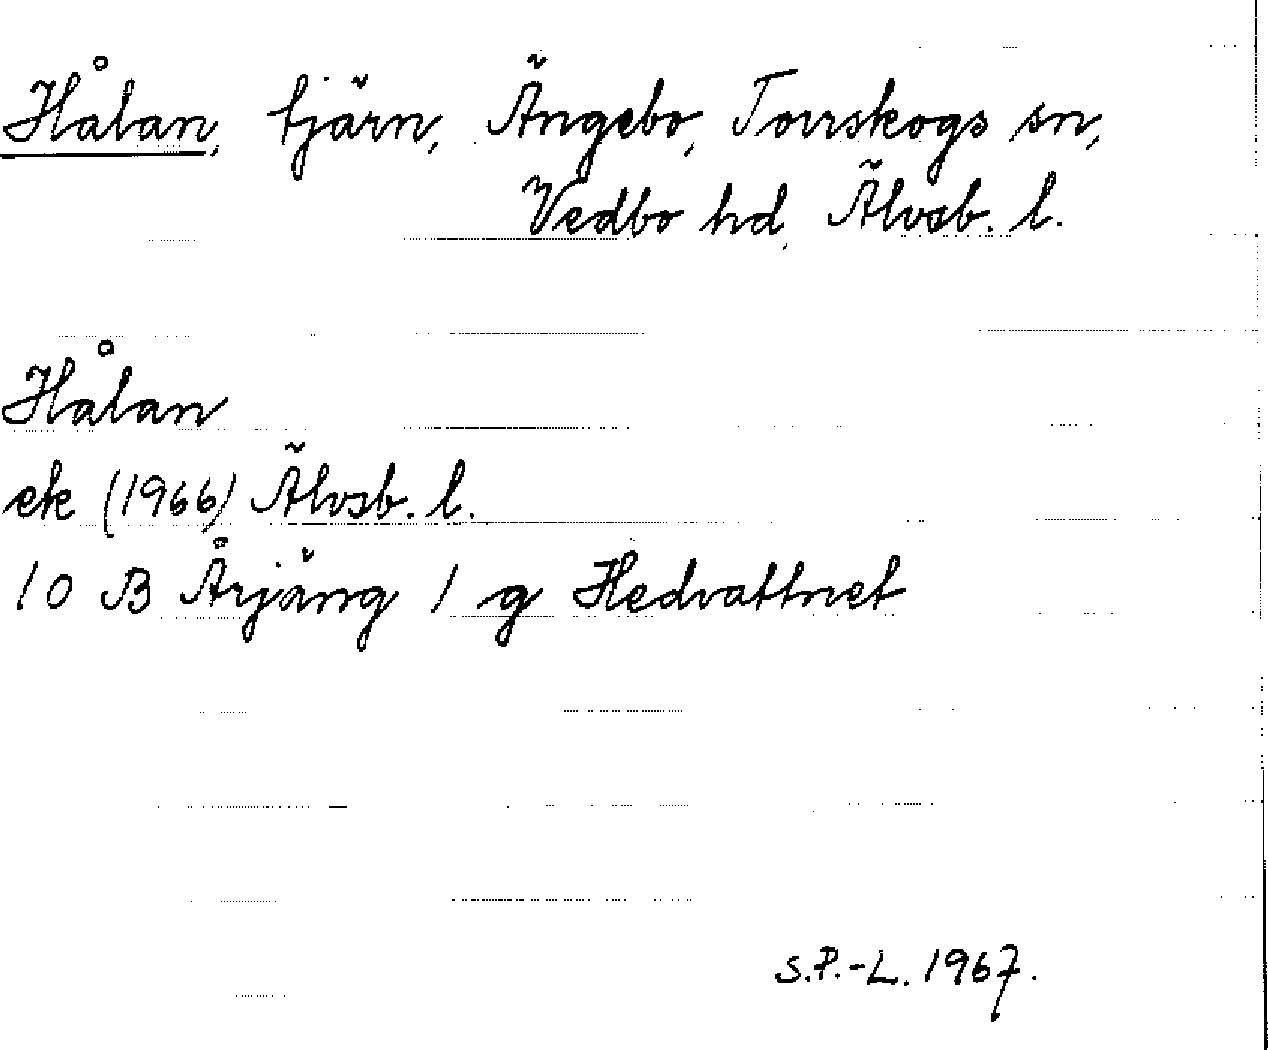 Hålan, tjärn, Ängebo, Torrskogs sn,
Vedbo hd, Älvsb. l.
Hålan
ek (1966) Älvsb. l.
10 B Årjäng 1 g Hedvattnet
S.P.-L. 1967.